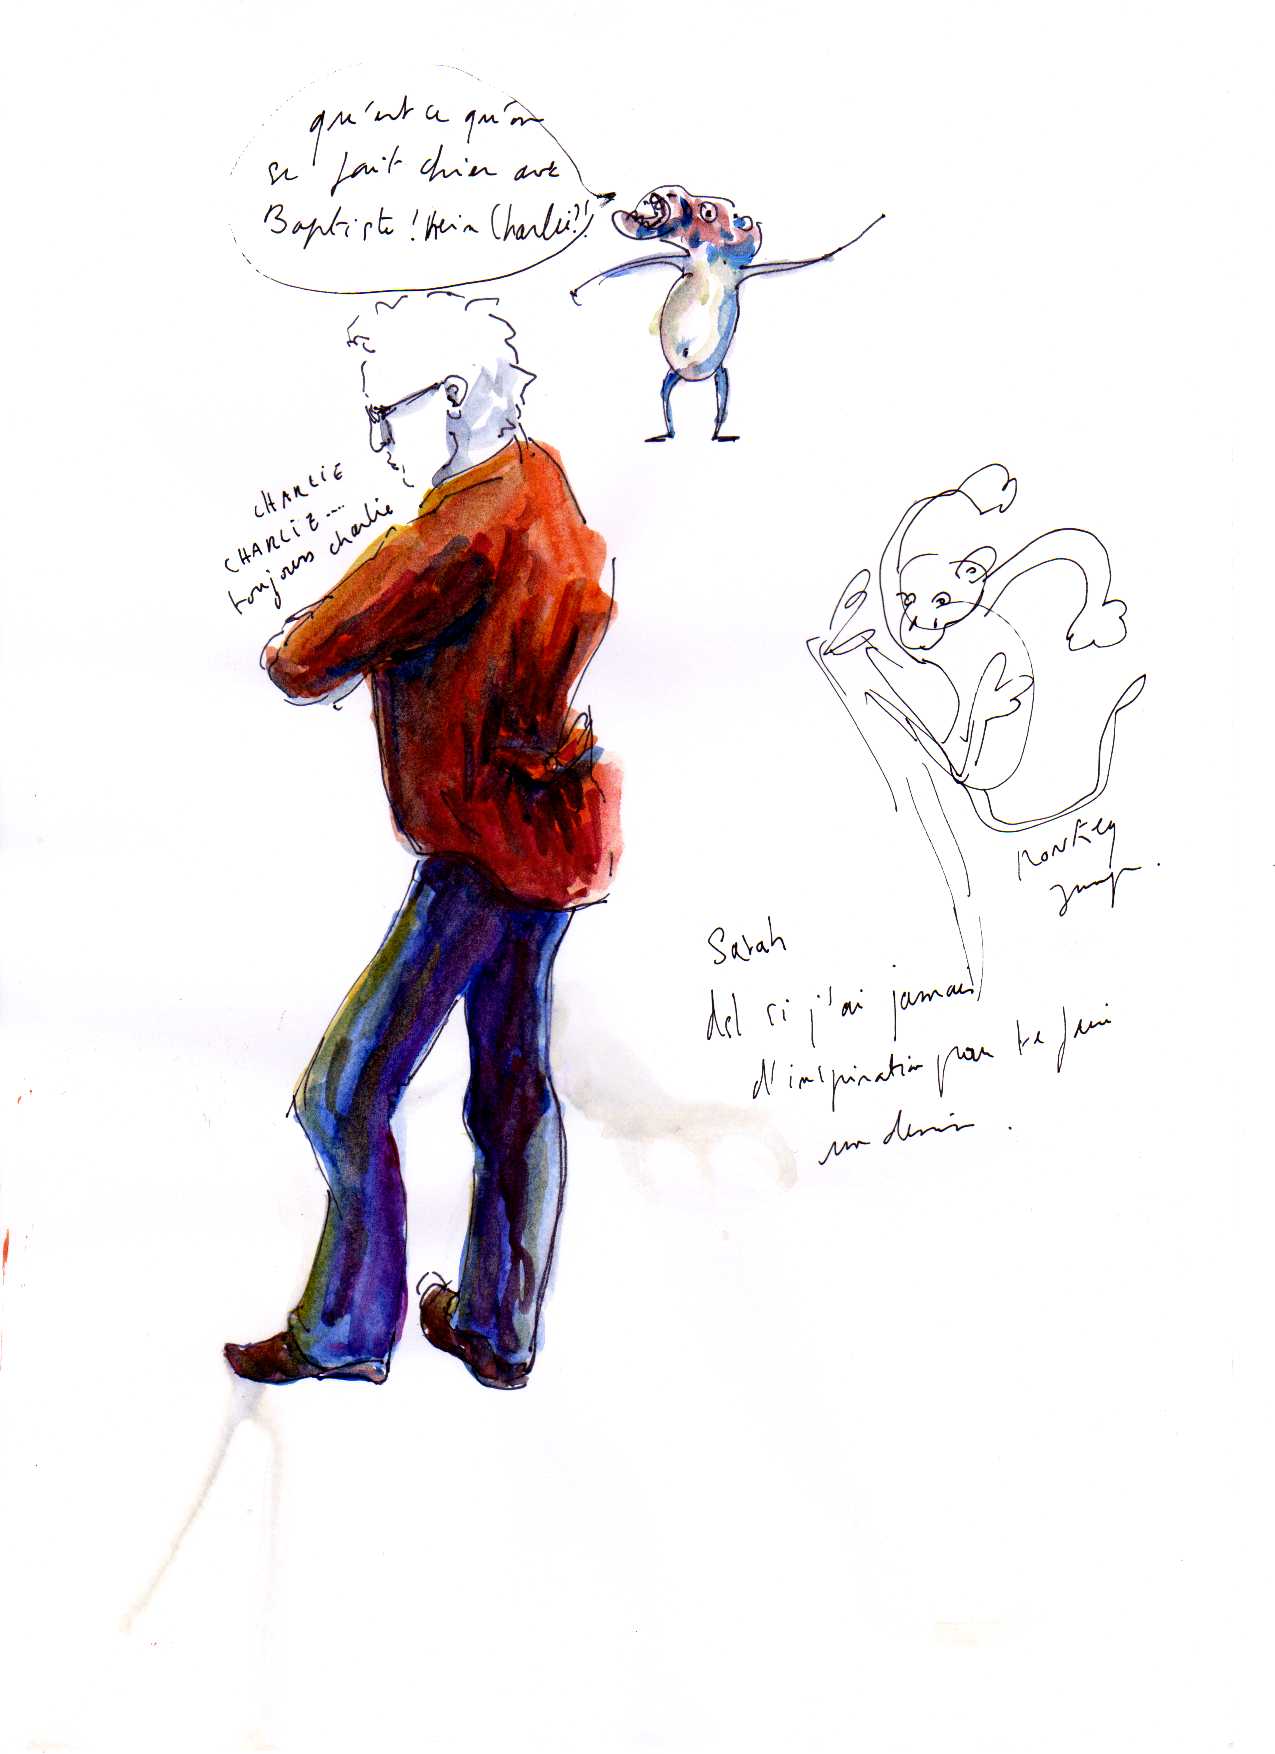 qu'est ce qu'on
se fait chier avec
Baptiste ! Hein Charlie ?!
CHARLIE
CHARLIE....
toujours charlie
MONKEY
Jump.
Sarah
dsl si j'ai jamais
d'inspiration pour te faire
un dessin.